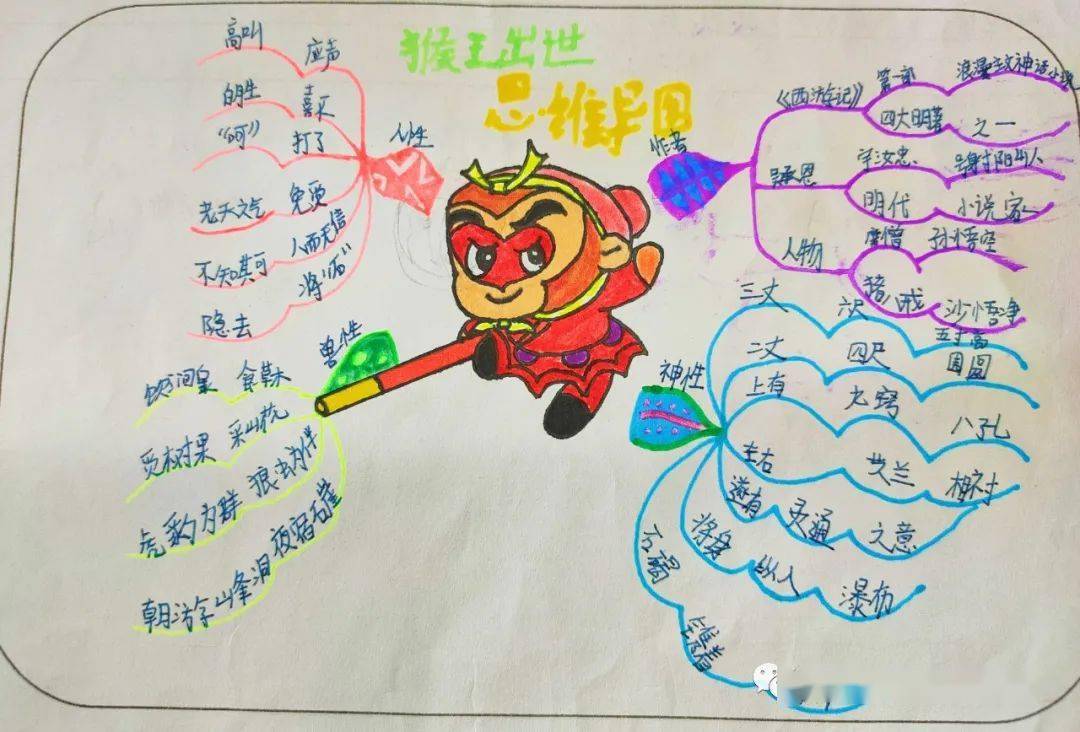 猴王出世
思维导图
人性
应声 高叫
喜不 自胜
打了 “呵”
免责 老天之气
人而无信 不知其可
将“石” 隐去
兽性
食草木
采山桃 觅树果
狼虫为伴 虎豹为群
夜宿石崖 朝游
作者
《西游记》 第一部 浪漫主义神话小说
四大明著 之一
吴承恩 字汝忠 号射阳山人
明代 小说家
人物 唐僧 孙悟空
猪八戒 沙悟净
神性
三丈 六尺 五寸高
二丈 四尺 围圆
上有 九窍 八孔
左右 芝兰 相衬
遂有 灵通 之意
将身 纵入 瀑布
石碣 镌着